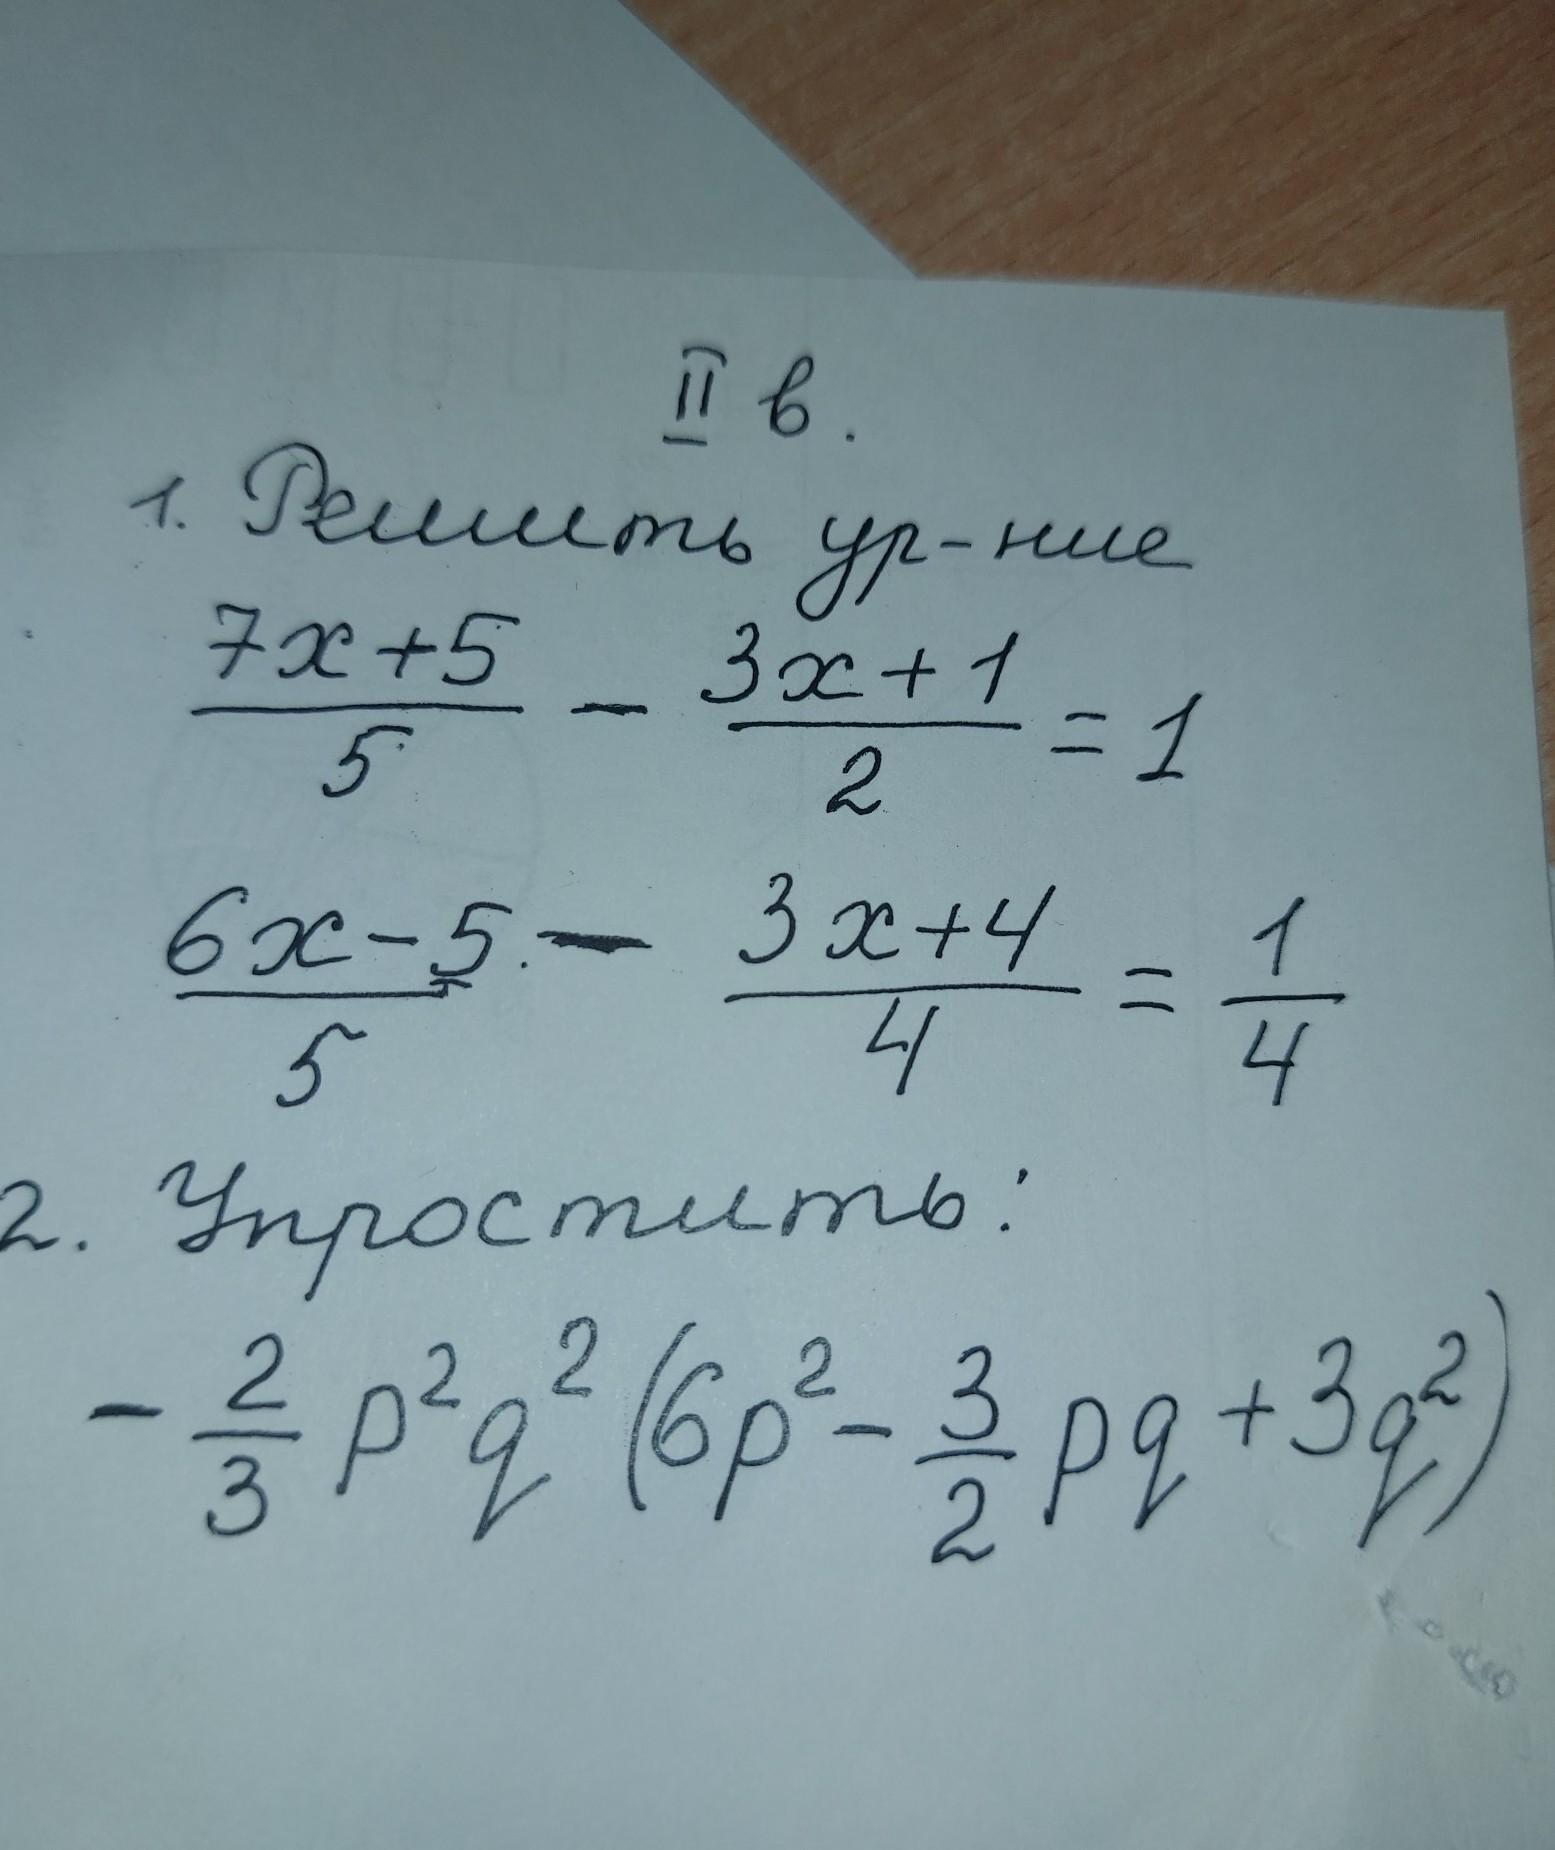 II в.
1. Решить ур-ние
(7x+5)/5 - (3x+1)/2 = 1
(6x-5)/5 - (3x+4)/4 = 1/4
2. Упростить:
- 2/3 p²q² (6p² - 3/2 pq + 3q²)